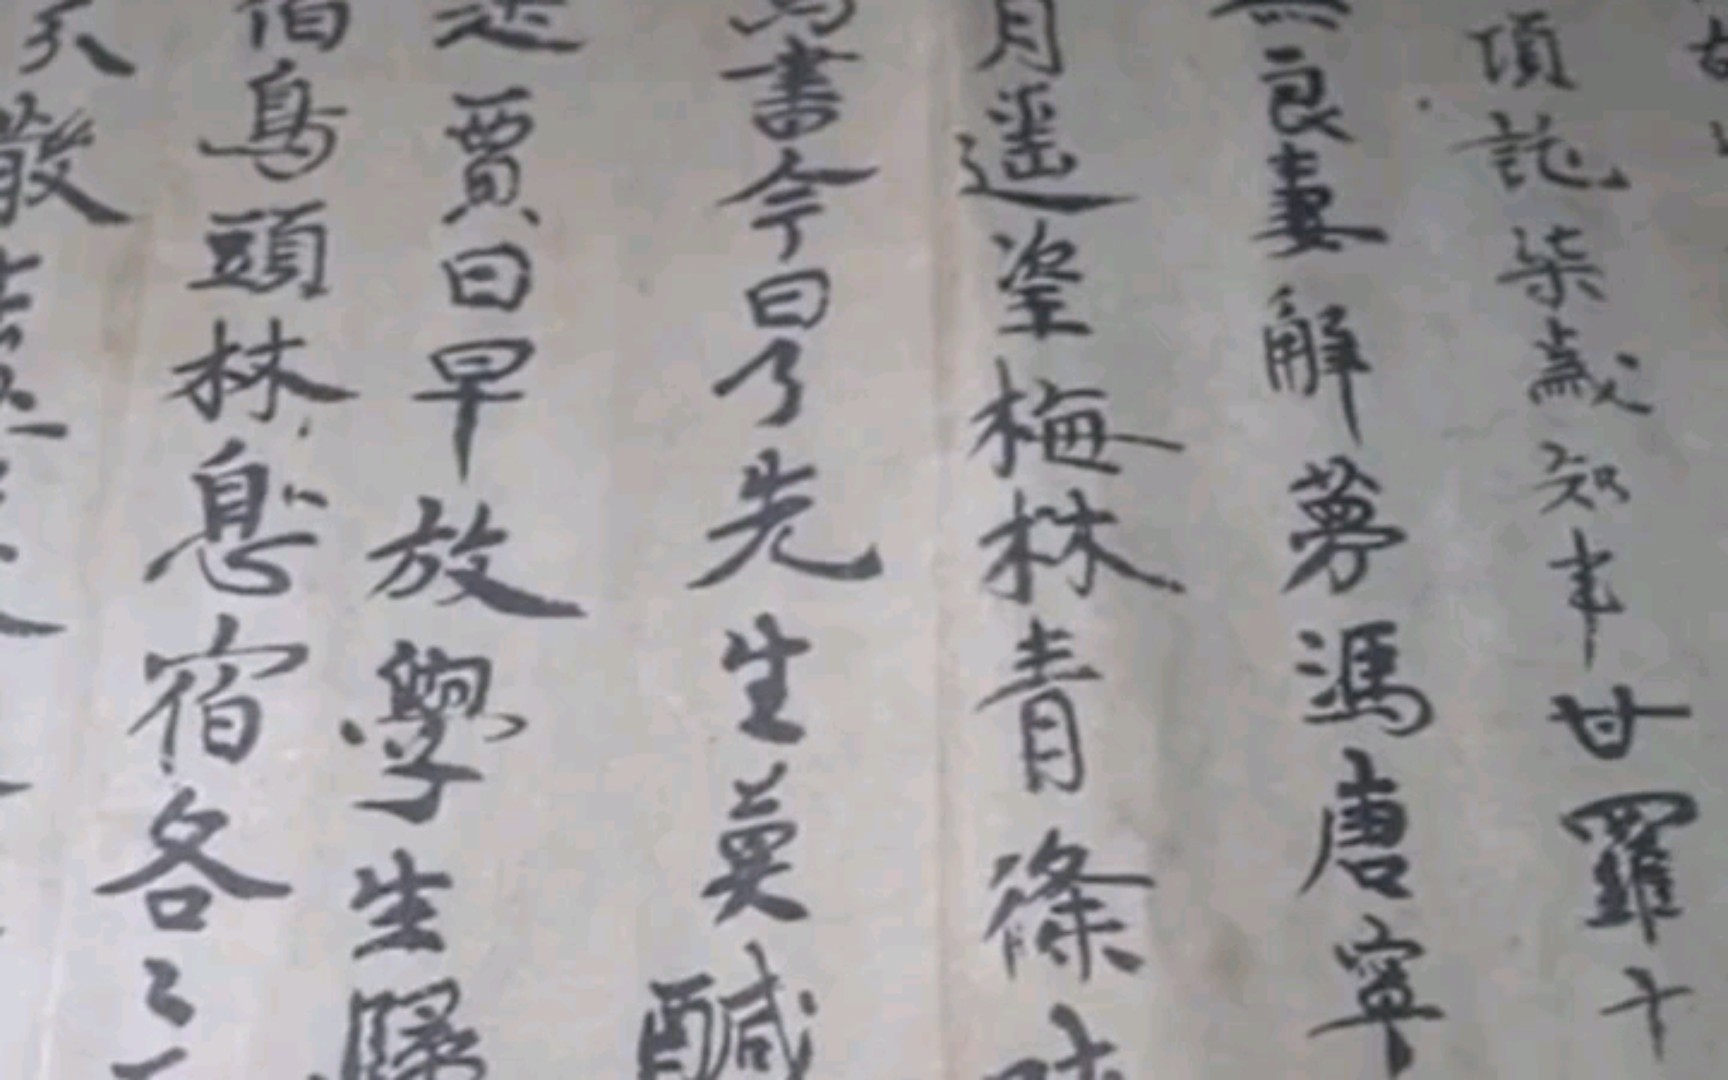 項託柒歲知事甘羅十
良妻解夢馮唐寧
月遥望梅林青篠
書今日了先生莫醎
賈日早放學生歸
宿鳥頭林息宿各〻
散